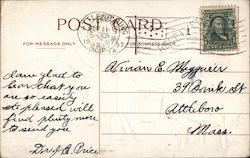 POST CARD
FOR MESSAGE ONLY.
FOR ADDRESS ONLY.
1
Vivian E.
39 Brook St
Attleboro
Mass.
Am glad to
hear that you
are so easily
pleased will
find plenty more
to send you
Price